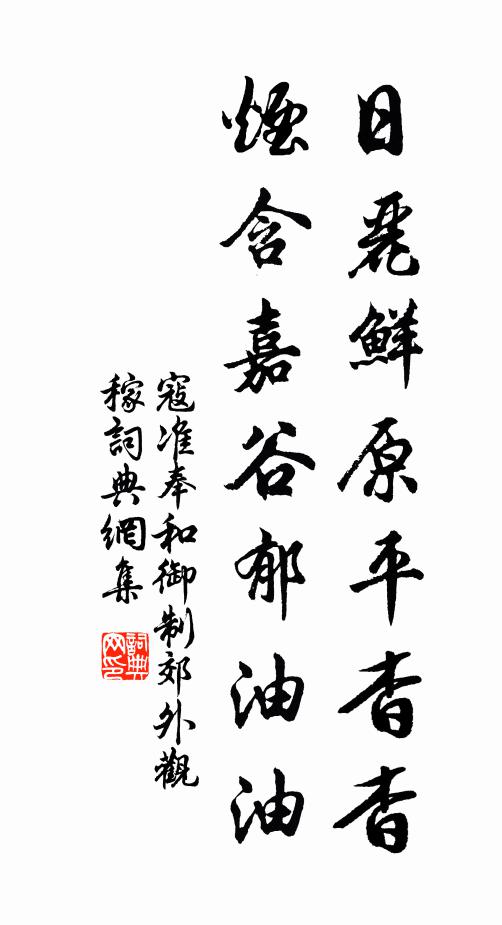 日麗鮮原平杳杳
煙含嘉谷郁油油
寇准奉和御制郊外觀
稼詞典網集
詞典网印